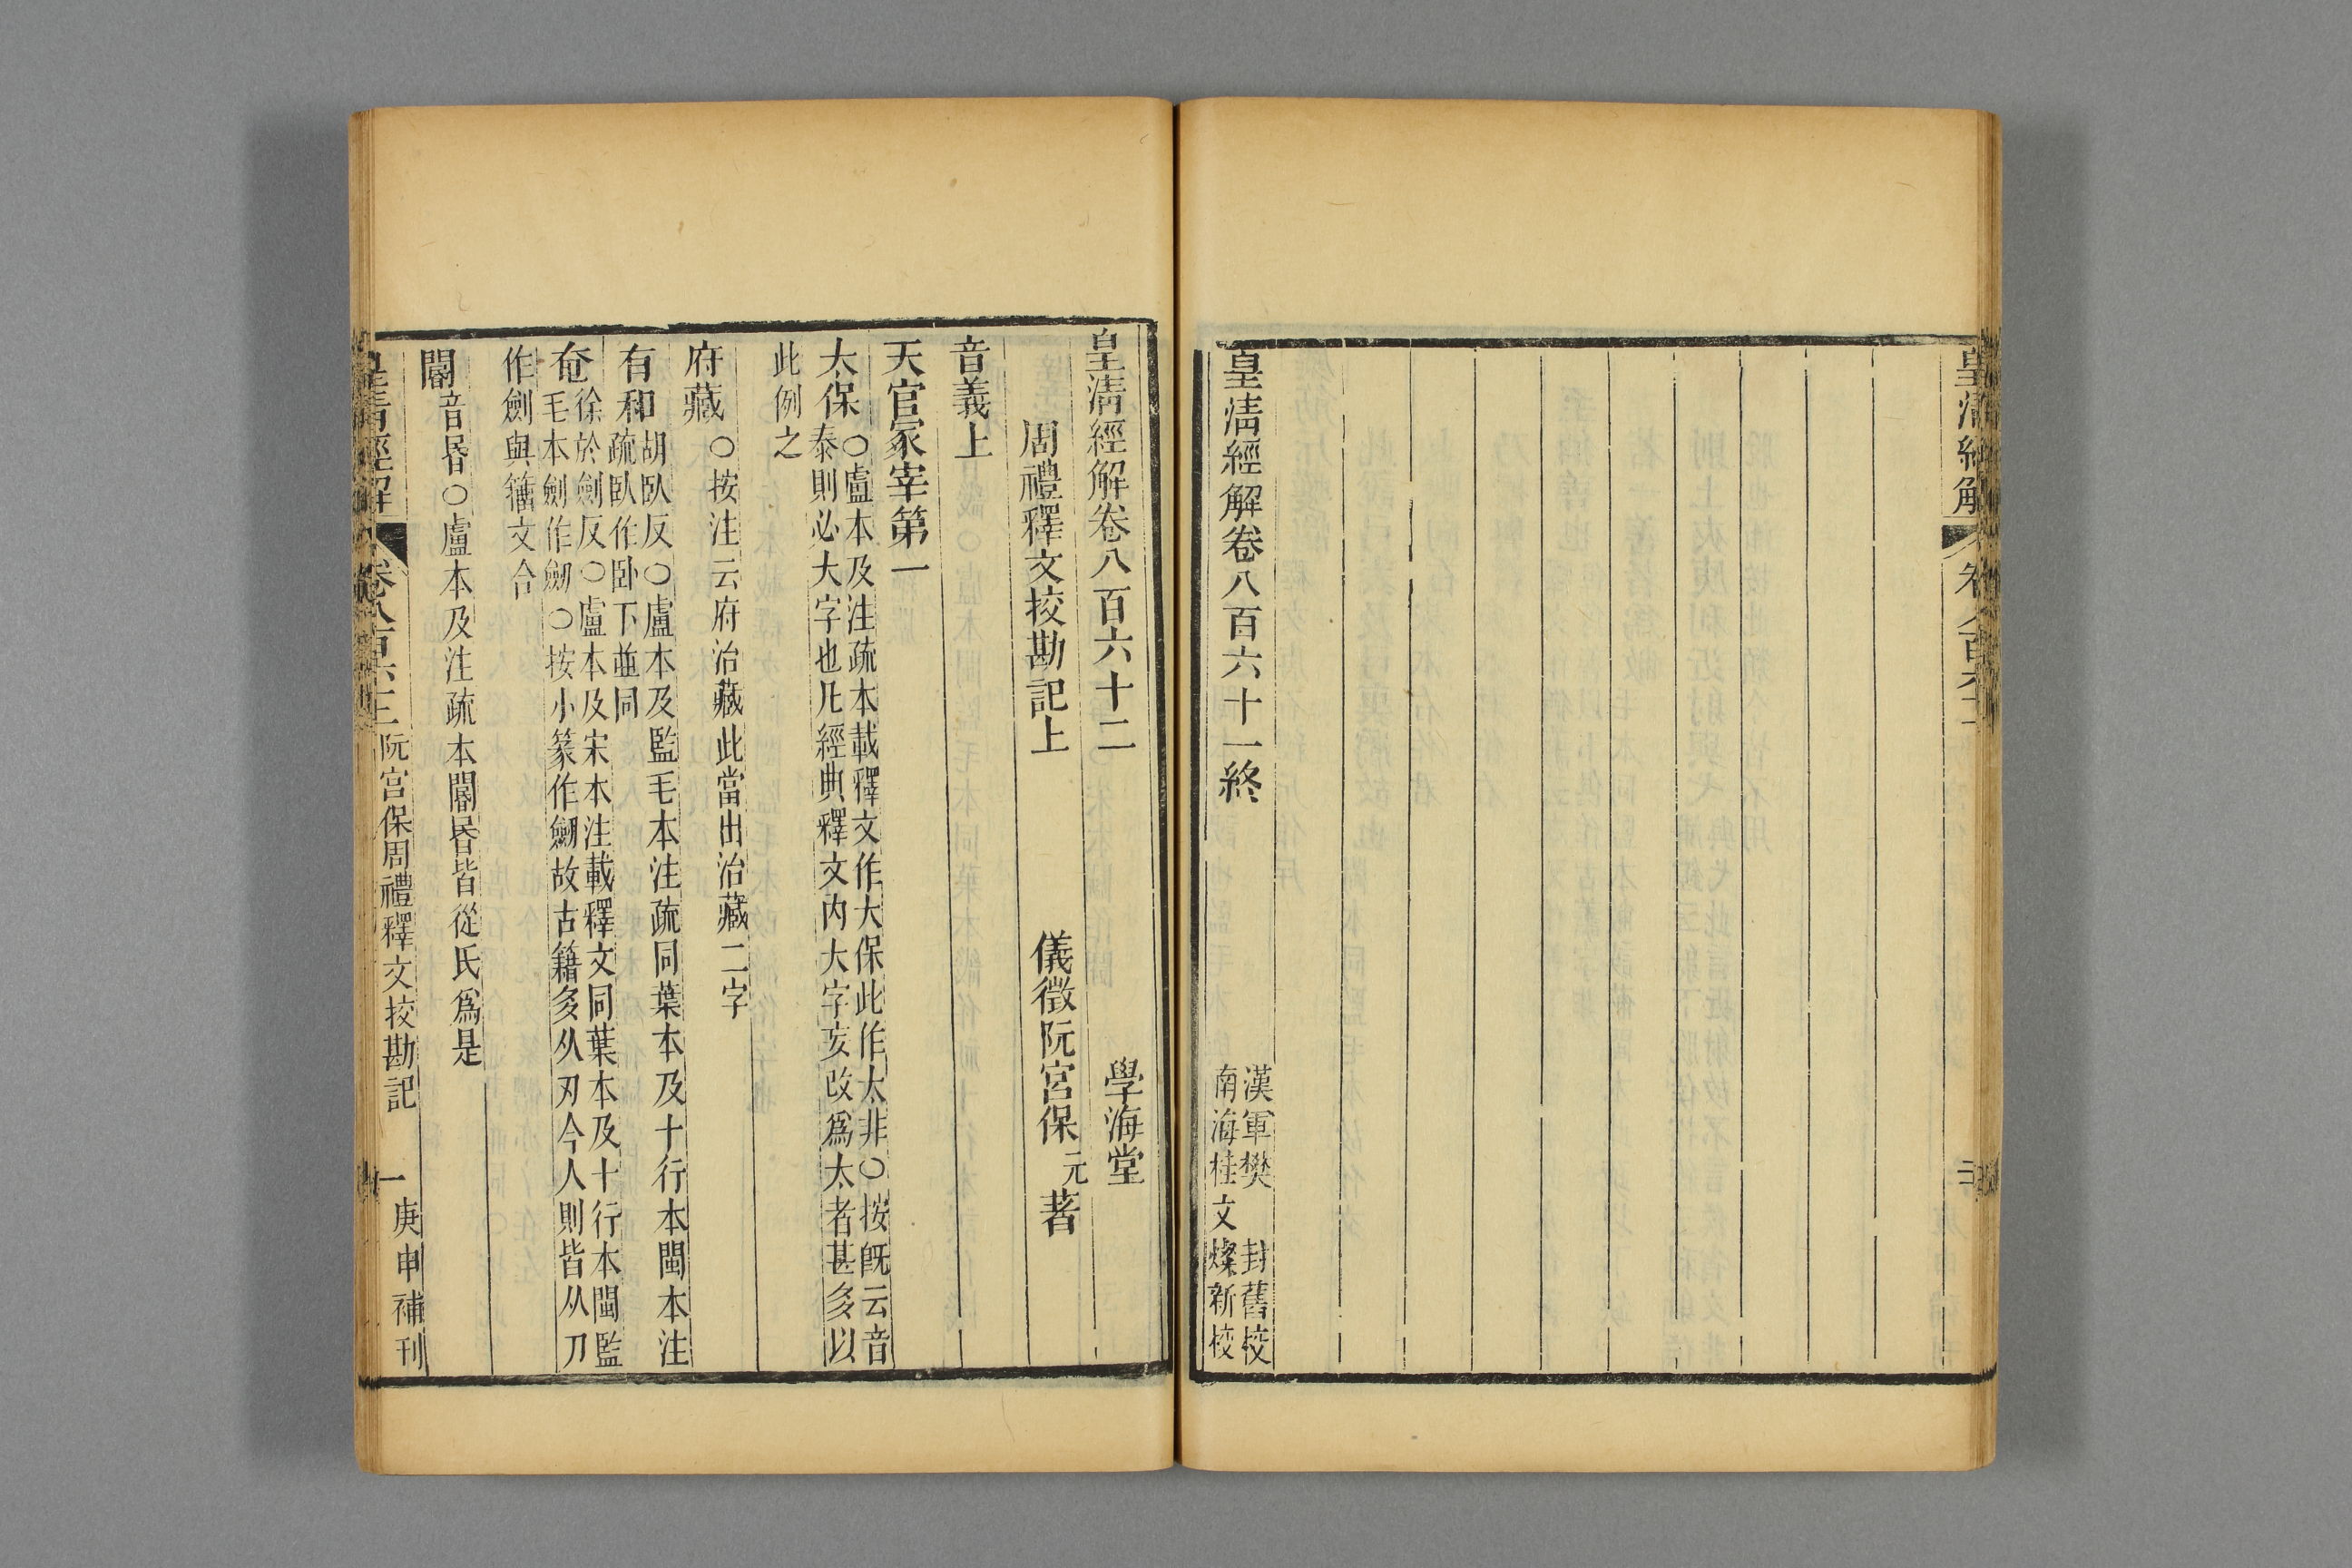 皇清經解
皇清經解卷八百六十一終
漢軍樊 封舊校
南海桂文燦新校
皇清經解卷八百六十二 學海堂
周禮釋文挍勘記上 儀徵阮宮保元著
音義上
天官冢宰第一
太保○盧本及注疏本載釋文作大保此作太非○按旣云音
泰則必大字也凡經典釋文內大字妄改爲太者甚多以
此例之
府藏○按注云府治藏此當出治藏二字
有和胡臥反○盧本及監毛本注疏同葉本及十行本閩本注
疏臥作卧下並同
奄徐於劍反○盧本及宋本注載釋文同葉本及十行本閩監
毛本劍作劒○按小篆作劒故古籍多从刃今人則皆从刀
作劍與籒文合
閽音昬○盧本及注疏本閽昬皆從氏爲是
皇清經解 卷八百六十二 阮宮保周禮釋文挍勘記 一 庚申補刊